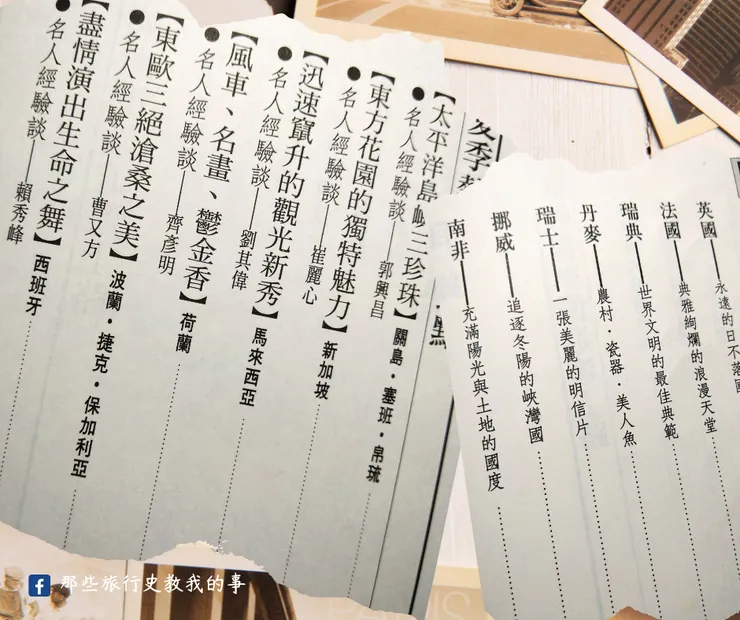 英國——永遠的日不落國
法國——典雅絢爛的浪漫天堂
瑞典——世界文明的最佳典範
丹麥——農村・瓷器・美人魚
瑞士——一張美麗的明信片
挪威——追逐冬陽的峽灣國
南非——充滿陽光與土地的國度
冬季
【太平洋島嶼三珍珠】關島・塞班・帛琉
●名人經驗談——郭興昌
【東方花園的獨特魅力】新加坡
●名人經驗談——崔麗心
【迅速竄升的觀光新秀】馬來西亞
●名人經驗談——劉其偉
【風車、名畫、鬱金香】荷蘭
●名人經驗談——齊彥明
【東歐三絕滄桑之美】波蘭・捷克・保加利亞
●名人經驗談——曹又方
【盡情演出生命之舞】西班牙
●名人經驗談——賴秀峰
那些旅行史教我的事